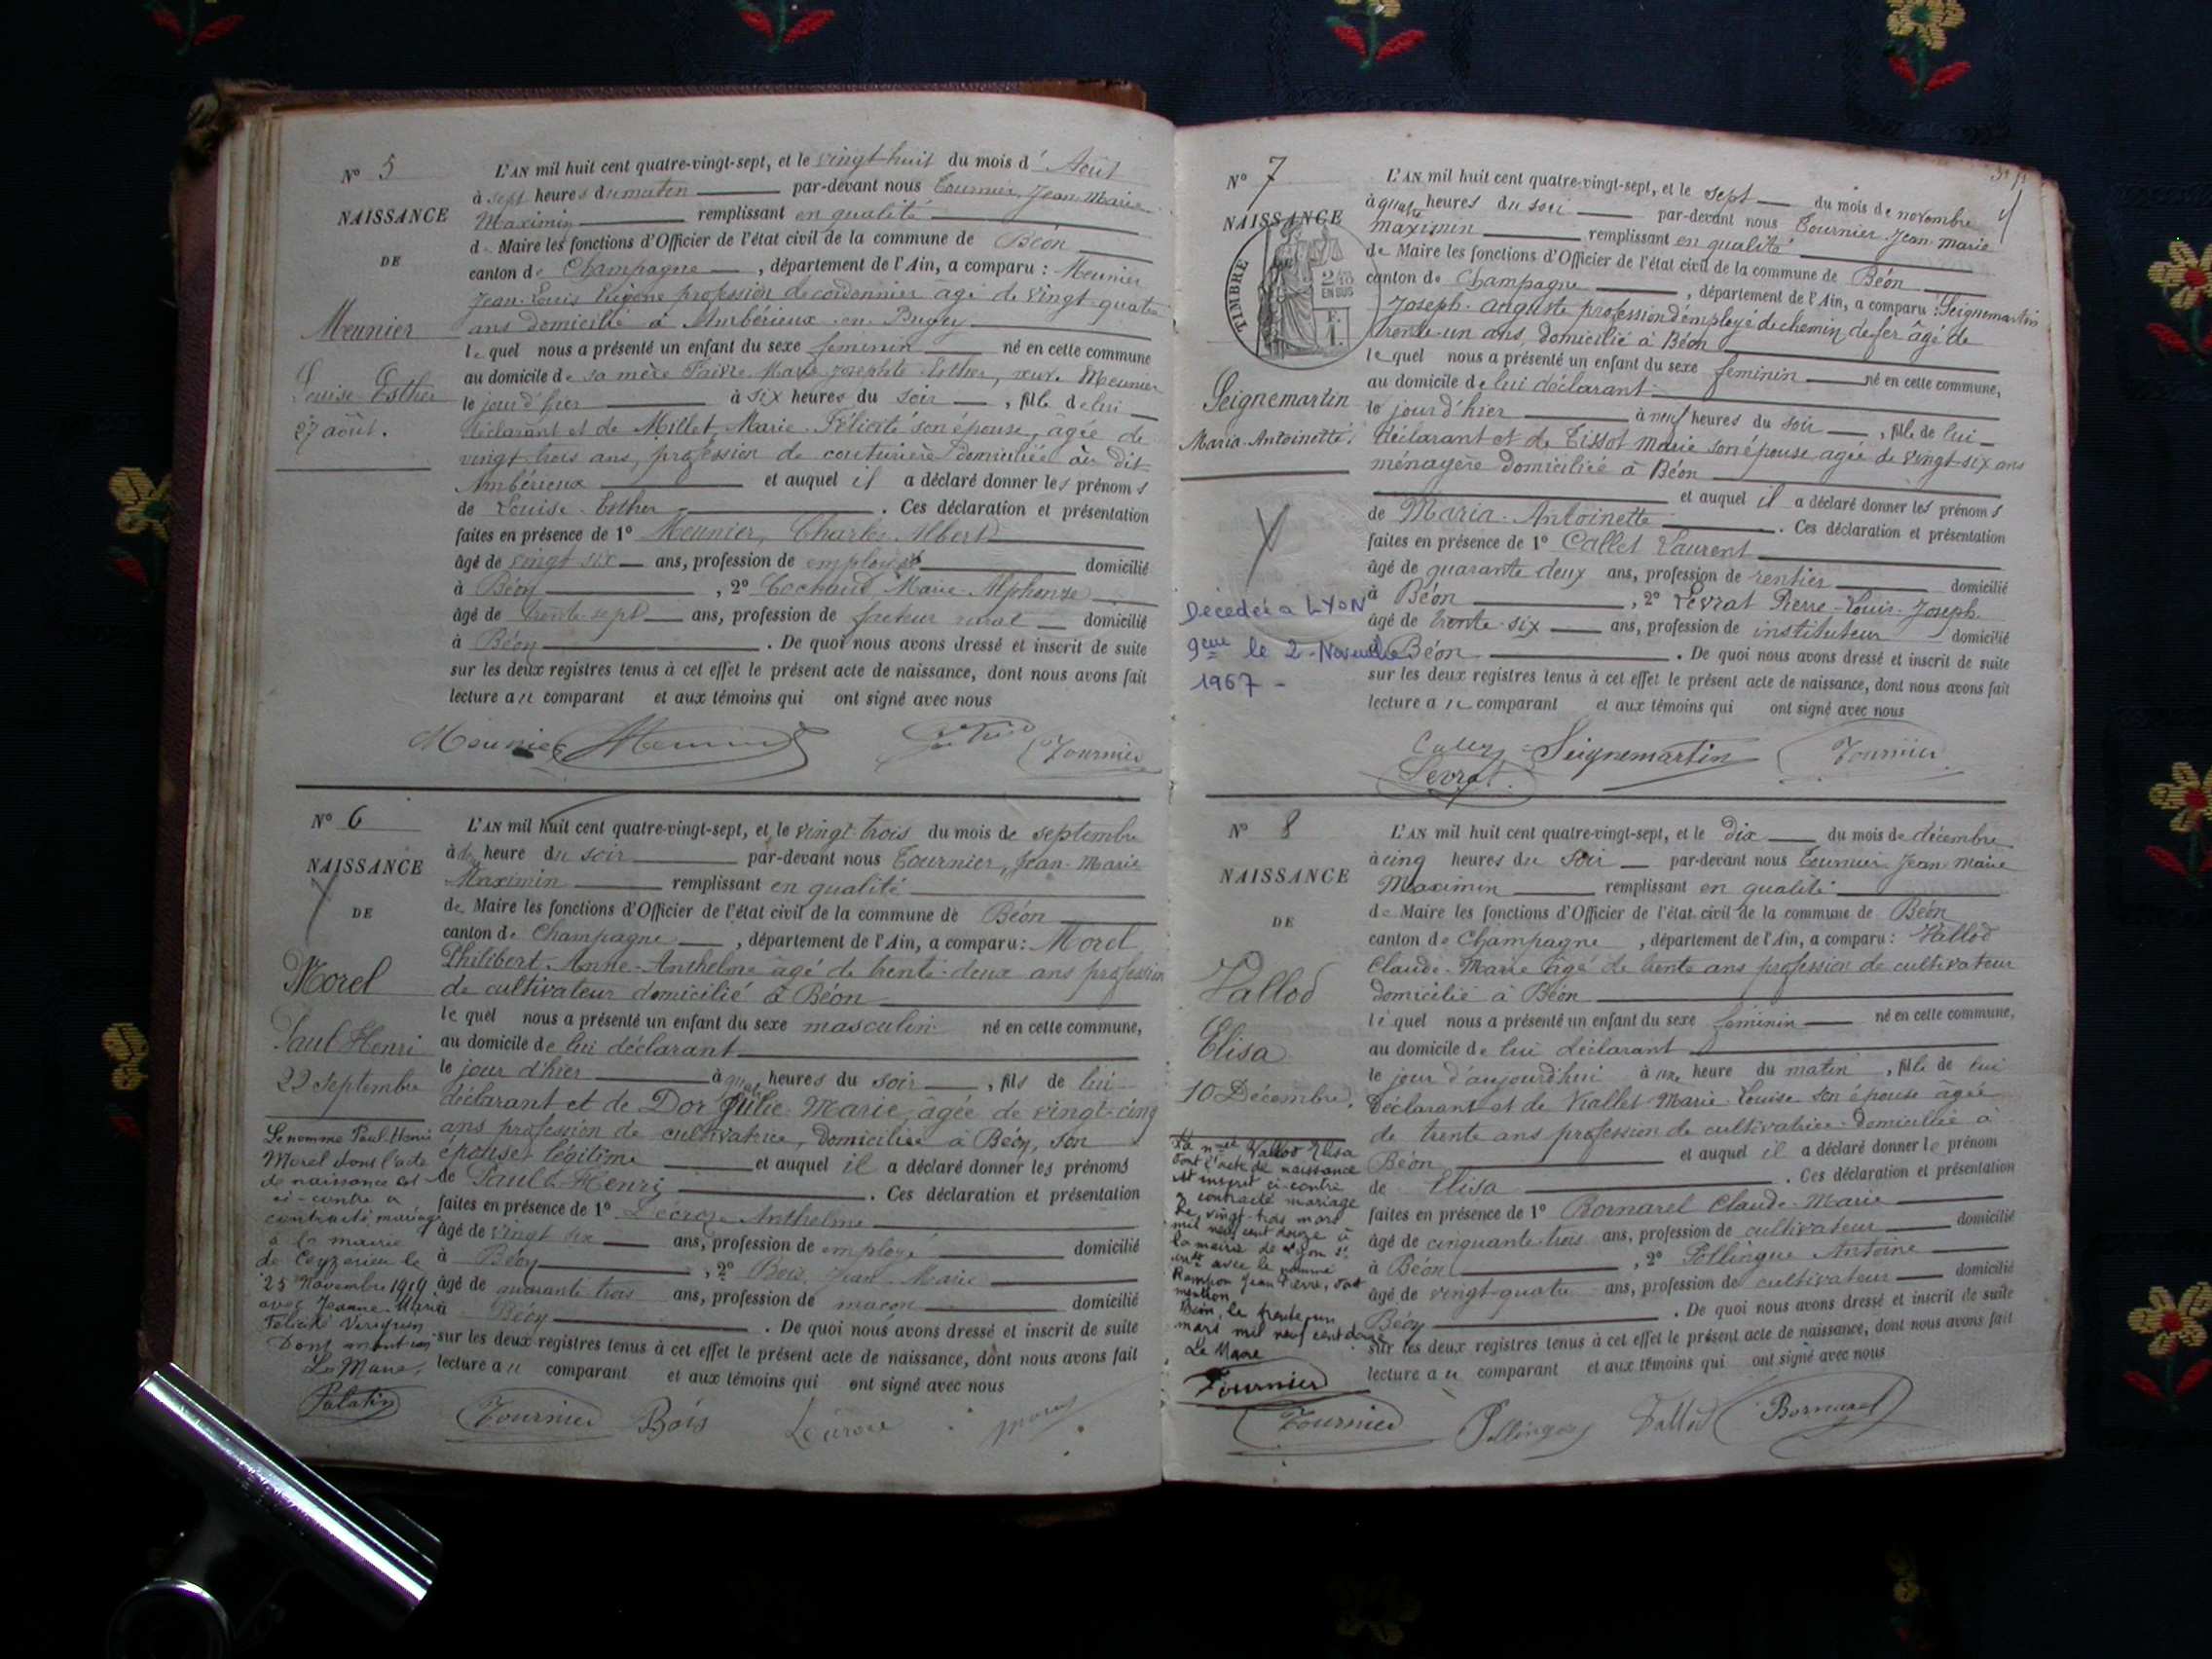 N° 5
NAISSANCE
DE
Meunier
Louise Esther
27 août.
L'AN mil huit cent quatre-vingt-sept, et le vingt-huit du mois d' Août
à sept heures du matin par-devant nous Tournier, Jean-Marie
Maximin remplissant en qualité
de Maire les fonctions d'Officier de l'état civil de la commune de Béon
canton de Champagne, département de l'Ain, a comparu : Meunier
Jean-Louis Eugène profession de cordonnier âgé de vingt-quatre
ans domicilié à Ambérieux-en-Bugey
le quel nous a présenté un enfant du sexe feminin né en cette commune
au domicile de sa mère Marie Josephte Esther, veuve Meunier
le jour d'hier à six heures du soir, fille de lui
déclarant et de Millet, Marie-Félicité son épouse, âgée de
vingt-trois ans, profession de couturière domiciliée au dit
Ambérieux et auquel il a déclaré donner les prénoms
de Louise-Esther. Ces déclaration et présentation
faites en présence de 1° Meunier, Charles Albert
âgé de vingt six ans, profession de employé domicilié
à Béon, 2° Cochand, Marie-Alphonse
âgé de trente-sept ans, profession de facteur rural domicilié
à Béon. De quoi nous avons dressé et inscrit de suite
sur les deux registres tenus à cet effet le présent acte de naissance, dont nous avons fait
lecture au comparant et aux témoins qui ont signé avec nous
Meunier Meunier Tournier
N° 6
NAISSANCE
DE
Morel
Paul Henri
22 Septembre
Le nommé Paul-Henri
Morel dont l'acte
de naissance est
ci-contre a
contracté mariage
à la mairie
de Ceyzérieu le
25 Novembre 1919
avec Jeanne-Marie
Félicité
Dont mention
Le Maire,
Palatin
L'AN mil huit cent quatre-vingt-sept, et le vingt-trois du mois de septembre
à heure du soir par-devant nous Tournier, Jean-Marie
Maximin remplissant en qualité
de Maire les fonctions d'Officier de l'état civil de la commune de Béon
canton de Champagne, département de l'Ain, a comparu : Morel
Philibert-Anne-Anthelme âgé de trente-deux ans profession
de cultivateur domicilié à Béon
le quel nous a présenté un enfant du sexe masculin né en cette commune,
au domicile de lui déclarant
le jour d'hier à quatre heures du soir, fils de lui
déclarant et de Dor Julie-Marie, âgée de vingt-cinq
ans profession de cultivatrice, domiciliée à Béon, son
épouse légitime et auquel il a déclaré donner les prénoms
de Paul-Henri. Ces déclaration et présentation
faites en présence de 1° Anthelme
âgé de vingt six ans, profession de employé domicilié
à Béon, 2° Bois, Jean-Marie
âgé de quarante-trois ans, profession de maçon domicilié
à Béon. De quoi nous avons dressé et inscrit de suite
sur les deux registres tenus à cet effet le présent acte de naissance, dont nous avons fait
lecture au comparant et aux témoins qui ont signé avec nous
Tournier Bois Morel
N° 7
NAISSANCE
TIMBRE
EN SUS
Seignemartin
Maria-Antoinette.
Décédée à LYON
9eme le 2-Novembre
1967 -
L'AN mil huit cent quatre-vingt-sept, et le sept du mois de novembre
à quatre heures du soir par-devant nous Tournier Jean-Marie
Maximin remplissant en qualité
de Maire les fonctions d'Officier de l'état civil de la commune de Béon
canton de Champagne, département de l'Ain, a comparu : Seignemartin
Joseph-Auguste profession d'employé de chemin de fer âgé de
trente-un ans, domicilié à Béon
le quel nous a présenté un enfant du sexe feminin né en cette commune,
au domicile de lui déclarant
le jour d'hier à neuf heures du soir, fille de lui
déclarant et de Tissot Marie son épouse âgée de vingt-six ans
ménagère domiciliée à Béon
et auquel il a déclaré donner les prénoms
de Maria-Antoinette. Ces déclaration et présentation
faites en présence de 1° Callet Laurent
âgé de quarante deux ans, profession de rentier domicilié
à Béon, 2° Levrat Pierre-Louis-Joseph
âgé de trente-six ans, profession de instituteur domicilié
à Béon. De quoi nous avons dressé et inscrit de suite
sur les deux registres tenus à cet effet le présent acte de naissance, dont nous avons fait
lecture au comparant et aux témoins qui ont signé avec nous
Seignemartin Tournier
Levrat
N° 8
NAISSANCE
DE
Vallod
Elisa
10 Décembre.
La nmée Vallod Elisa
dont l'acte de naissance
est inscrit ci-contre
a contracté mariage
le vingt-trois mars
mil neuf cent douze à
la mairie de Lyon
avec le nommé
Rampon Jean Pierre, dont
mention
Béon, le trente un
mars mil neuf cent douze
Le Maire
Tournier
L'AN mil huit cent quatre-vingt-sept, et le dix du mois de décembre
à cinq heures du soir par-devant nous Tournier Jean-Marie
Maximin remplissant en qualité
de Maire les fonctions d'Officier de l'état civil de la commune de Béon
canton de Champagne, département de l'Ain, a comparu : Vallod
Claude-Marie âgé de trente ans profession de cultivateur
domicilié à Béon
le quel nous a présenté un enfant du sexe feminin né en cette commune,
au domicile de lui déclarant
le jour d'aujourd'hui à une heure du matin, fille de lui
déclarant et de Viallet Marie-Louise son épouse âgée
de trente ans profession de cultivatrice domiciliée à
Béon et auquel il a déclaré donner le prénom
de Elisa. Ces déclaration et présentation
faites en présence de 1° Bornarel Claude-Marie
âgé de cinquante-trois ans, profession de cultivateur domicilié
à Béon, 2° Pollingue Antoine
âgé de vingt-quatre ans, profession de cultivateur domicilié
Béon. De quoi nous avons dressé et inscrit de suite
sur les deux registres tenus à cet effet le présent acte de naissance, dont nous avons fait
lecture au comparant et aux témoins qui ont signé avec nous
Tournier Pollingue Vallod Bornarel